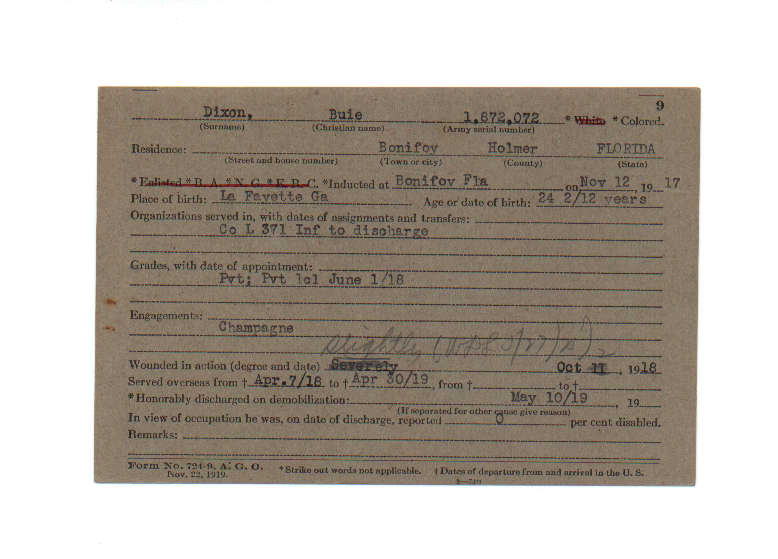 9
Dixon, Buie 1,872,072 * White * Colored.
(Surname) (Christian name) (Army serial number)
Residence: Bonifoy Holmer FLORIDA
(Street and house number) (Town or city) (County) (State)
* Enlisted * R. A. * N. G. * E. R. C. *Inducted at Bonifoy Fla on Nov 12, 1917
Place of birth: La Fayette Ga Age or date of birth: 24 2/12 years
Organizations served in, with dates of assignments and transfers:
Co L 371 Inf to discharge
Grades, with date of appointment:
Pvt; Pvt 1cl June 1/18
Engagements:
Champagne
slightly
Wounded in action (degree and date) Severely Oct 11, 1918
Served overseas from † Apr. 7/18 to † Apr 30/19, from † to †
* Honorably discharged on demobilization: May 10/19, 19
(If separated for other cause give reason)
In view of occupation he was, on date of discharge, reported 0 per cent disabled.
Remarks:
Form No. 724-9, A. G. O. * Strike out words not applicable. † Dates of departure from and arrival in the U. S.
Nov. 22, 1919.